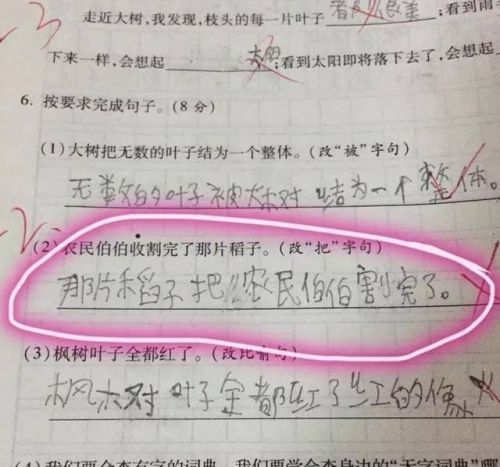 3
走近大树,我发现,枝头的每一片叶子 ;看到雨
下来一样,会想起 太阳;看到太阳即将落下去了,会想起
6. 按要求完成句子。(8 分)
(1)大树把无数的叶子结为一个整体。(改“被”字句)
无数的叶子被大树结为一个整体。
-2
(2)农民伯伯收割完了那片稻子。(改“把”字句)
那片稻子把农民伯伯割完了。
(3)枫树叶子全都红了。(改比喻句)
枫树叶子全都红了红的像
(4)我们要会查有字的词典,我们要学会查身边的“无字词典”哪